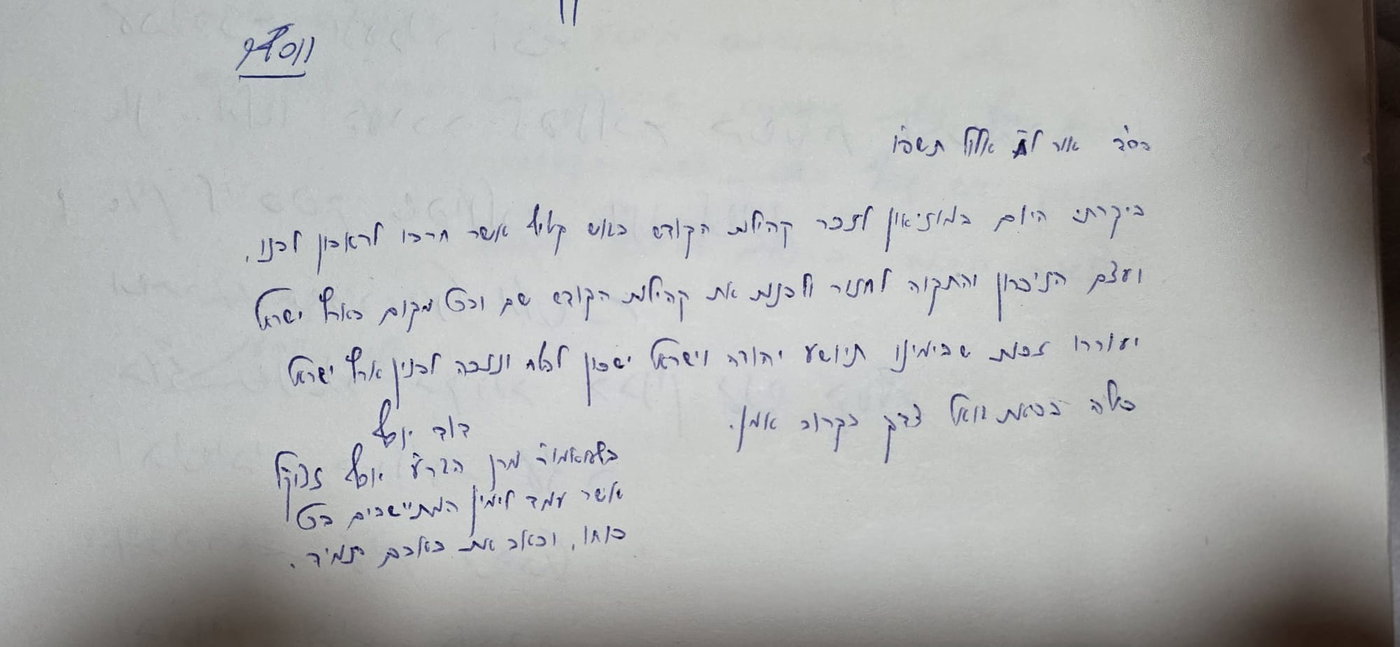 בס"ד אור ל אלול תשפ"ו
ביקרתי היום במוזיאון לזכר קהילות הקודש בגוש קטיף אשר חרבו לדאבון לבנו,
ועצם הזיכרון והתקוה לחזור ולבנות את קהילות הקודש שם ובכל מקום בארץ ישראל
יעוררו זכות שבימינו תיוושע יהודה וישראל ישכון לבטח ונזכה לבנין ארץ ישראל
כולה בביאת גואל צדק בקרוב אמן.
דוד יוסף
בן מרן הגר"ע יוסף זצוק"ל
אשר עמד לימין המתיישבים בכל
כוחו, וכאב את כאבם תמיד.